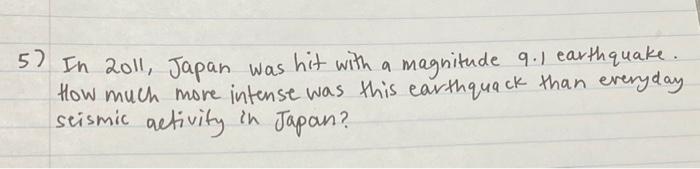 5) In 2011, Japan was hit with a magnitude 9.1 earthquake.
How much more intense was this earthquack than everyday
seismic activity in Japan?